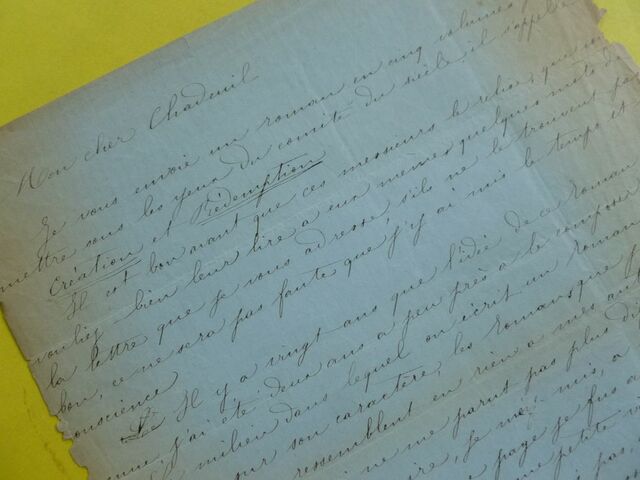 Mon cher Chadeuil
Je vous envoie un roman en cinq volumes
mettre sous les yeux du comité du siècle il s'appelle
Création et Rédemption
Il est bon avant que ces messieurs le lisent que
vouliez bien leur lire a eux mêmes quelques mots de
la lettre que je vous adresse s'ils ne le trouvent pas
bon, ce ne sera pas faute que j'y ai mis le temps et
conscience
Il y a vingt ans que l'idée de ce roman
j'ai été deux ans a peu près a le composer
milieu dans lequel on écrit un roman
sur son caractère, les romans que j
ressemblent en rien a mes
ne me parut pas plus
je me mis, a
page je fus
petite